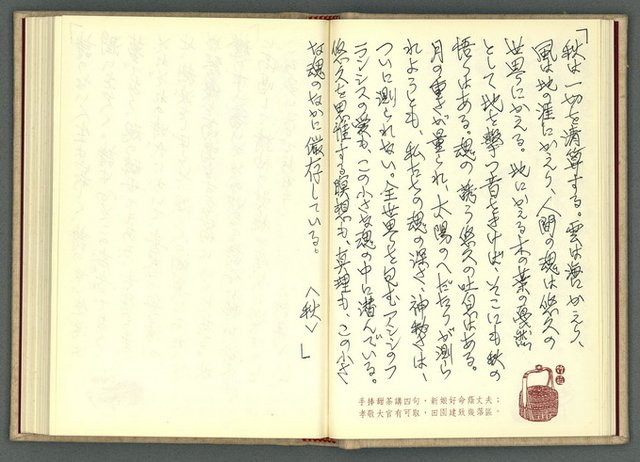 「秋は一切を清算する。雲は海にかえり、
風は地の涯にかえり、人間の魂は悠久の
世界にかえる。地にかえる木の葉の戞然
として地を撃つ音をきけば、そこにも秋の
悟りはある。魂の誘う悠久の吐息はある。
月の重さが量られ、太陽のへだたりが測ら
れようとも、私たちの魂の深さ、神秘さは、
ついに測られない。全世界を包むアシジのフ
ランシスの愛も、この小さな魂の中に潜んでいる。
悠久を思惟する瞑想も、真理も、この小さ
な魂のなかに儼存している。
〈秋〉」
手捧甜茶講四句，新娘好命蔭丈夫；
孝敬大官有可取，田園建致幾落區。